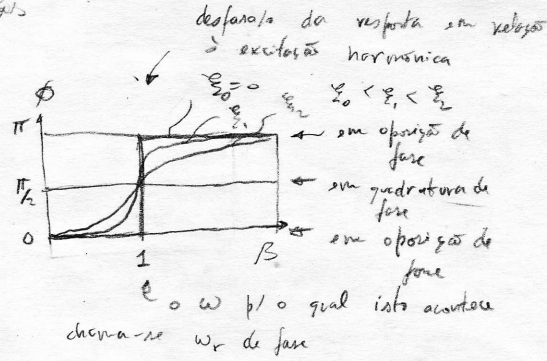 desfasa/o da resposta em relação
à excitação harmónica
ξ₀=0 ξ₀ < ξ₁ < ξ₂
ϕ ξ₁ ξ₂
π em oposição de
fase
π/2 em quadratura de
fase
0 em oposição de
fase
1 β
o ω p/ o qual isto acontece
chama-se ωr de fase